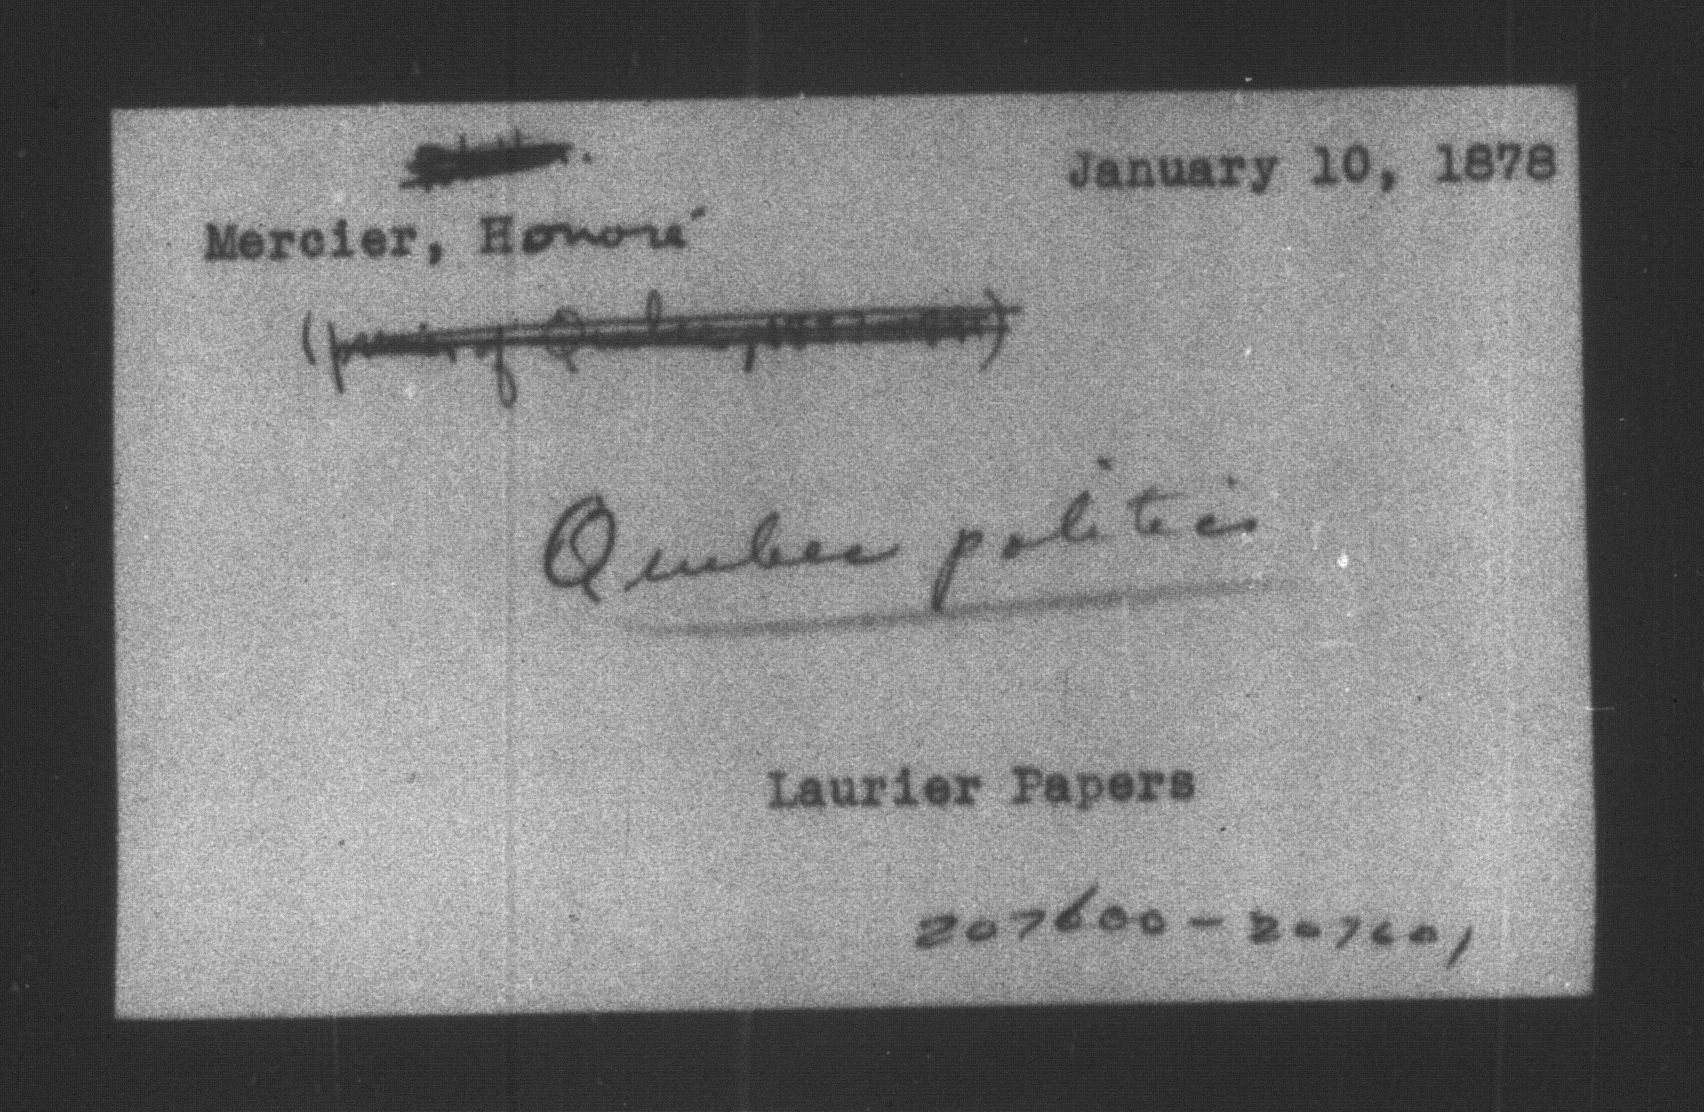 January 10, 1878
Mercier, Honoré
Quebec politics
Laurier Papers
207600-207601